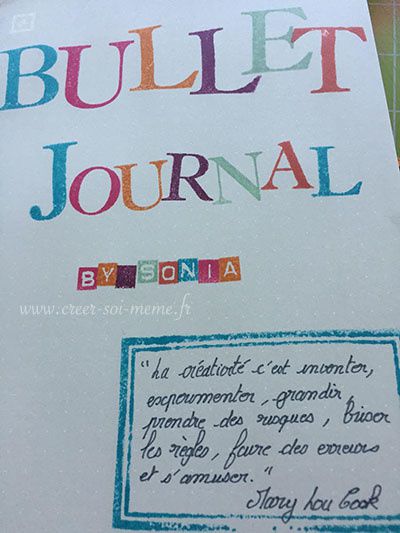 BULLET
JOURNAL
BY SONIA
www.creer-soi-meme.fr
"La créativité c'est inventer,
expérimenter, grandir,
prendre des risques, briser
les règles, faire des erreurs
et s'amuser."
Mary Lou Cook